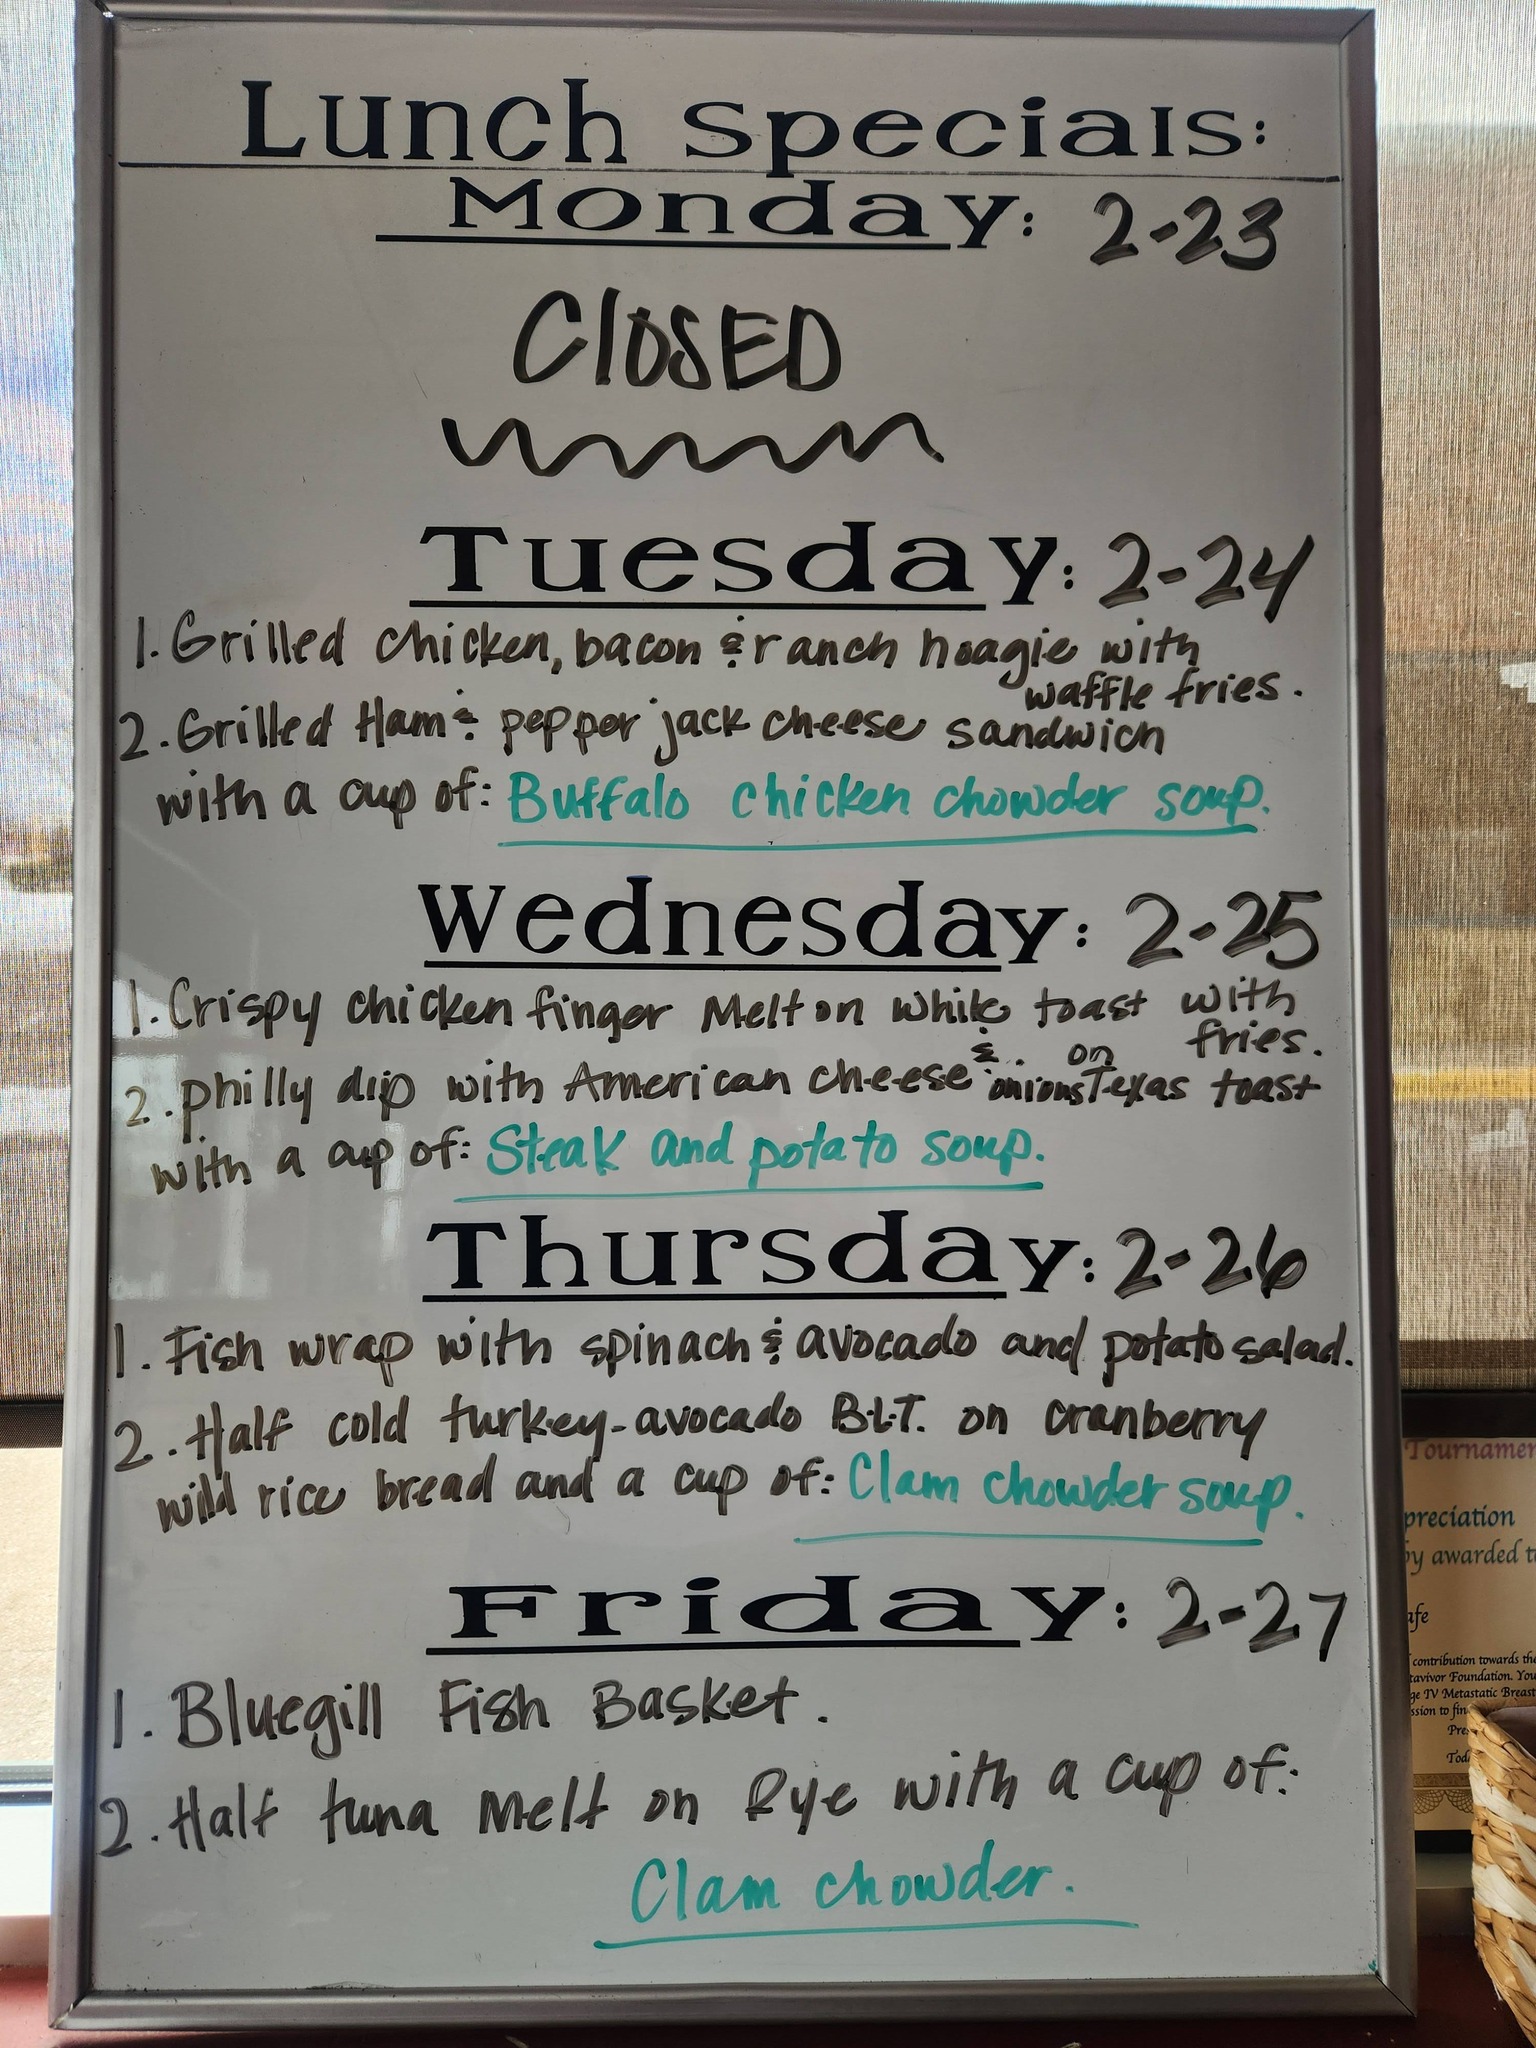 Lunch Specials:
Monday: 2-23
ClOSED
Tuesday: 2-24
1. Grilled chicken, bacon & ranch hoagie with
waffle fries.
2. Grilled Ham & pepper jack cheese sandwich
with a cup of: Buffalo chicken chowder soup.
Wednesday: 2-25
1. Crispy chicken finger Melt on white toast with
fries.
2. philly dip with American cheese & onions on Texas toast
with a cup of: Steak and potato soup.
Thursday: 2-26
1. Fish wrap with spinach & avocado and potato salad.
2. Half cold turkey-avocado B.L.T. on cranberry
wild rice bread and a cup of: Clam chowder soup.
Friday: 2-27
1. Bluegill Fish Basket.
2. Half tuna Melt on Rye with a cup of:
Clam chowder.
Tournamen
preciation
by awarded t
afe
contribution towards the
tavivor Foundation. You
ge IV Metastatic Breast
ssion to fin
Pres
Toda